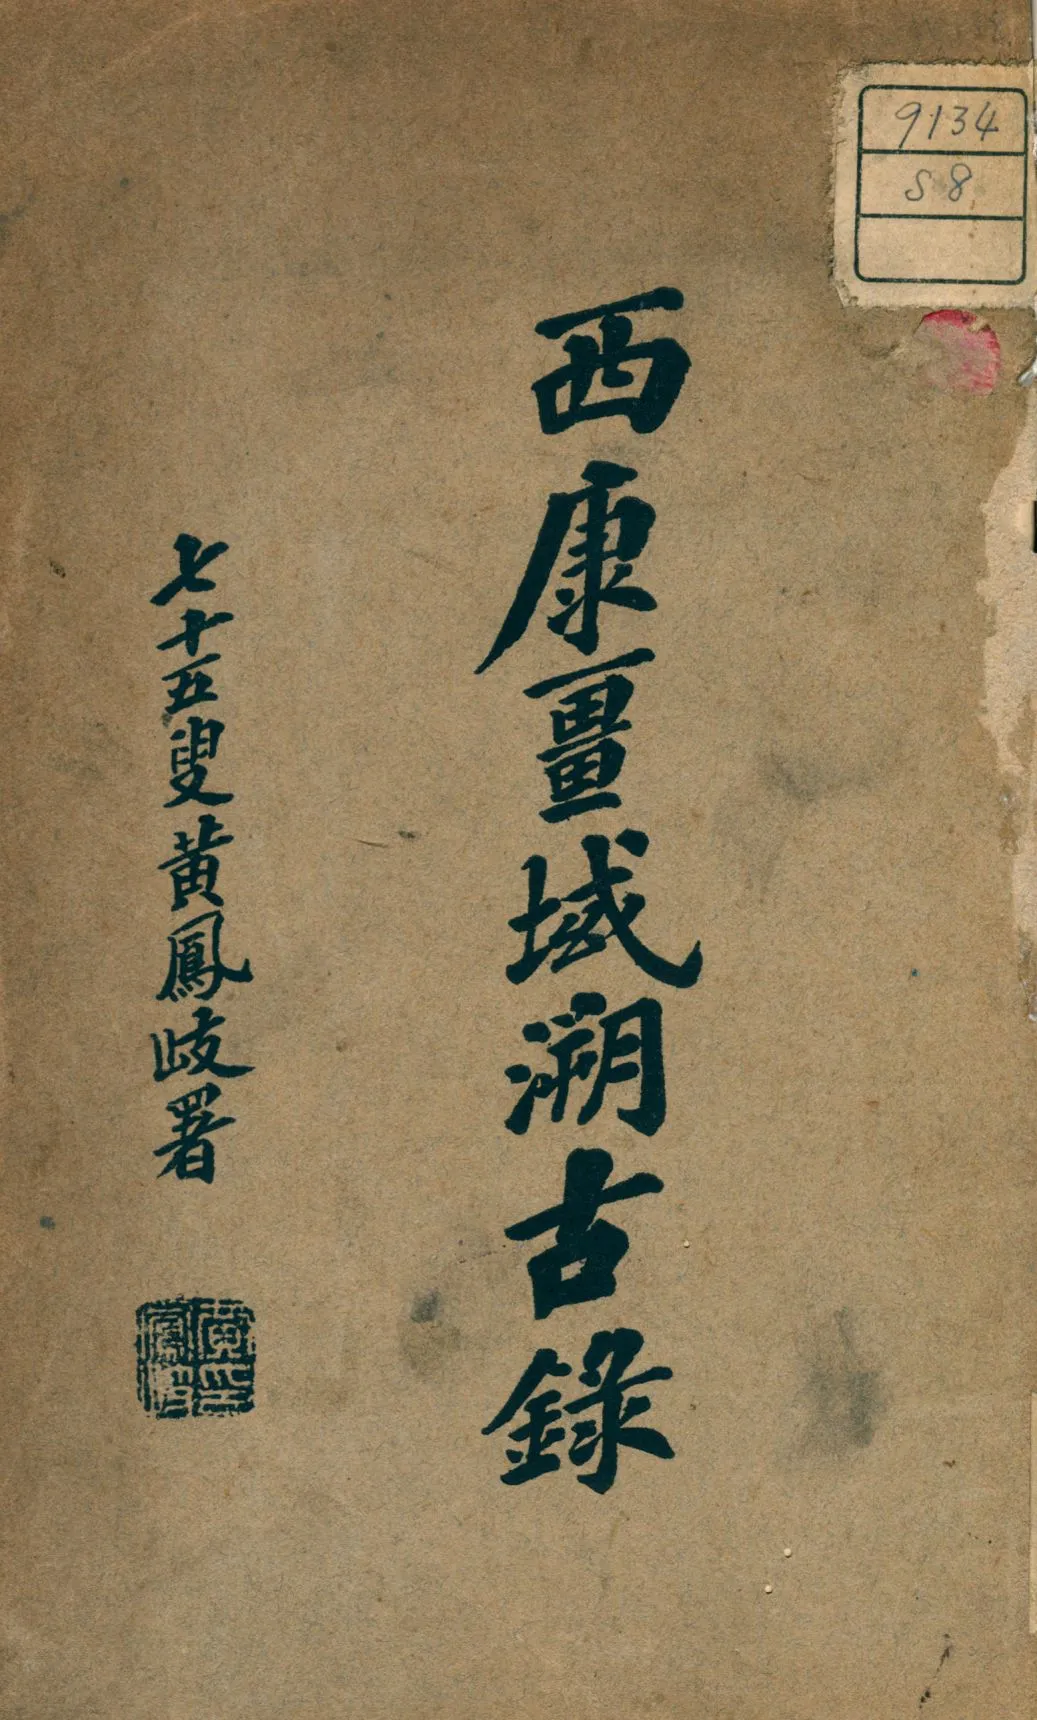 西康畺域溯古錄
七十五叟黃鳳岐署
9134
S8